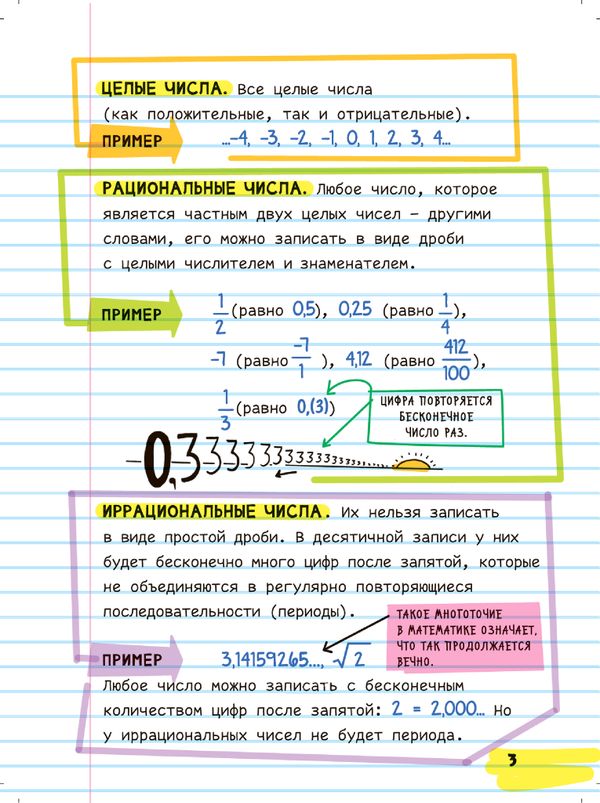 ЦЕЛЫЕ ЧИСЛА. Все целые числа
(как положительные, так и отрицательные).
ПРИМЕР ...-4, -3, -2, -1, 0, 1, 2, 3, 4...
РАЦИОНАЛЬНЫЕ ЧИСЛА. Любое число, которое
является частным двух целых чисел – другими
словами, его можно записать в виде дроби
с целыми числителем и знаменателем.
ПРИМЕР 1/2 (равно 0,5), 0,25 (равно 1/4),
-7 (равно -7/1 ), 4,12 (равно 412/100),
1/3 (равно 0,(3))
ЦИФРА ПОВТОРЯЕТСЯ
БЕСКОНЕЧНОЕ
ЧИСЛО РАЗ.
0,33333333333333333333
ИРРАЦИОНАЛЬНЫЕ ЧИСЛА. Их нельзя записать
в виде простой дроби. В десятичной записи у них
будет бесконечно много цифр после запятой, которые
не объединяются в регулярно повторяющиеся
последовательности (периоды).
ТАКОЕ МНОГОТОЧИЕ
В МАТЕМАТИКЕ ОЗНАЧАЕТ,
ЧТО ТАК ПРОДОЛЖАЕТСЯ
ВЕЧНО.
ПРИМЕР 3,14159265..., √2
Любое число можно записать с бесконечным
количеством цифр после запятой: 2 = 2,000... Но
у иррациональных чисел не будет периода.
3